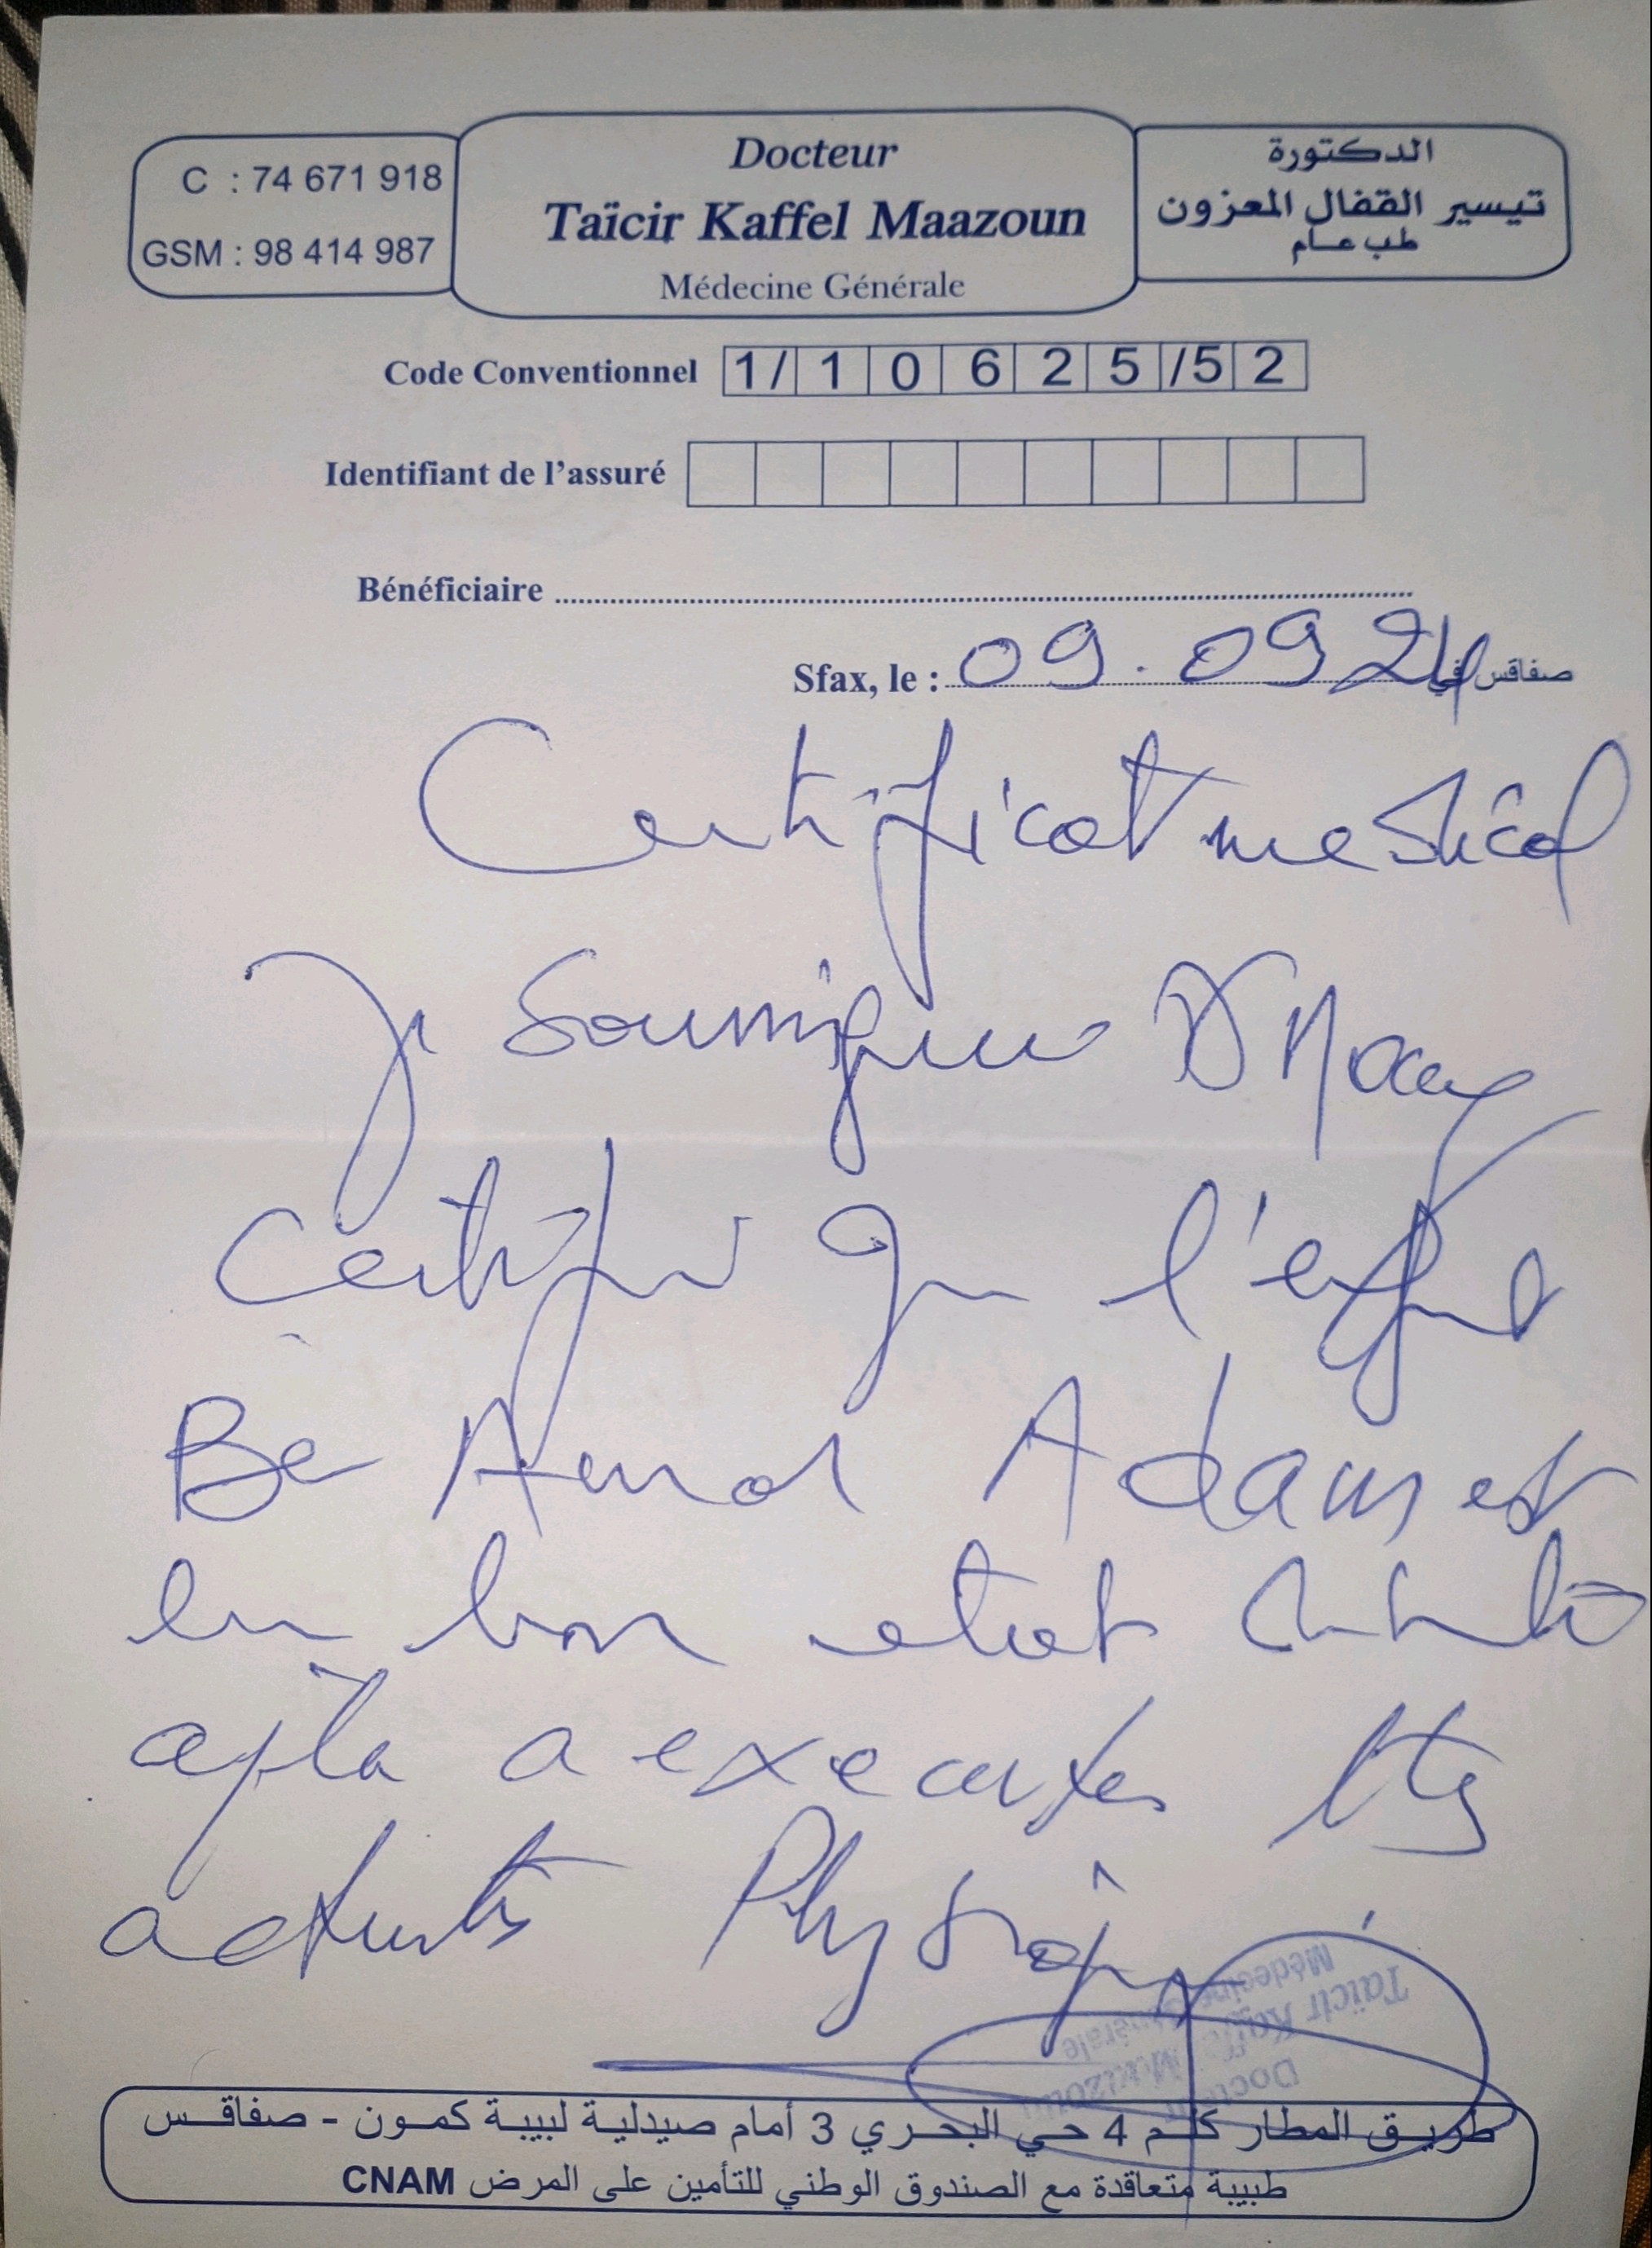 C : 74 671 918
GSM : 98 414 987
Docteur
Taïcir Kaffel Maazoun
Médecine Générale
الدكتورة
تيسير القفال المعزون
طب عام
Code Conventionnel 1/ 1 0 6 2 5 /5 2
Identifiant de l'assuré
Bénéficiaire
Sfax, le : 09.09 24 صفاقس في
Certificat medical
Je Soussigné Dr
certifie que l'enfant
Ben Adam est
en bon etat
apte a executer
activités Physiques
Docteur
Taïcir Kaffel Maazoun
Médecine Générale
طريق المطار كلم 4 حي البحري 3 أمام صيدلية لبيبة كمون - صفاقس
طبيبة متعاقدة مع الصندوق الوطني للتأمين على المرض CNAM